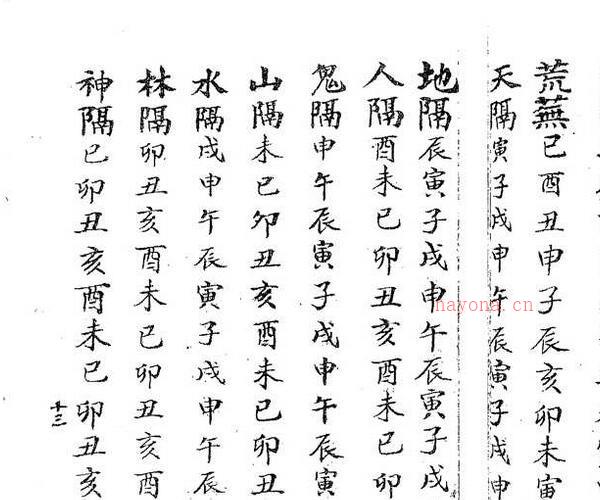 荒蕪巳酉丑申子辰亥卯未寅
天隔寅子戌申午辰寅子戌申
地隔辰寅子戌申午辰寅子戌
人隔酉未巳卯丑亥酉未巳卯
鬼隔申午辰寅子戌申午辰寅
山隔未巳卯丑亥酉未巳卯丑
水隔戌申午辰寅子戌申午辰
林隔卯丑亥酉未巳卯丑亥酉
神隔巳卯丑亥酉未巳卯丑亥
十三
nayona.cn